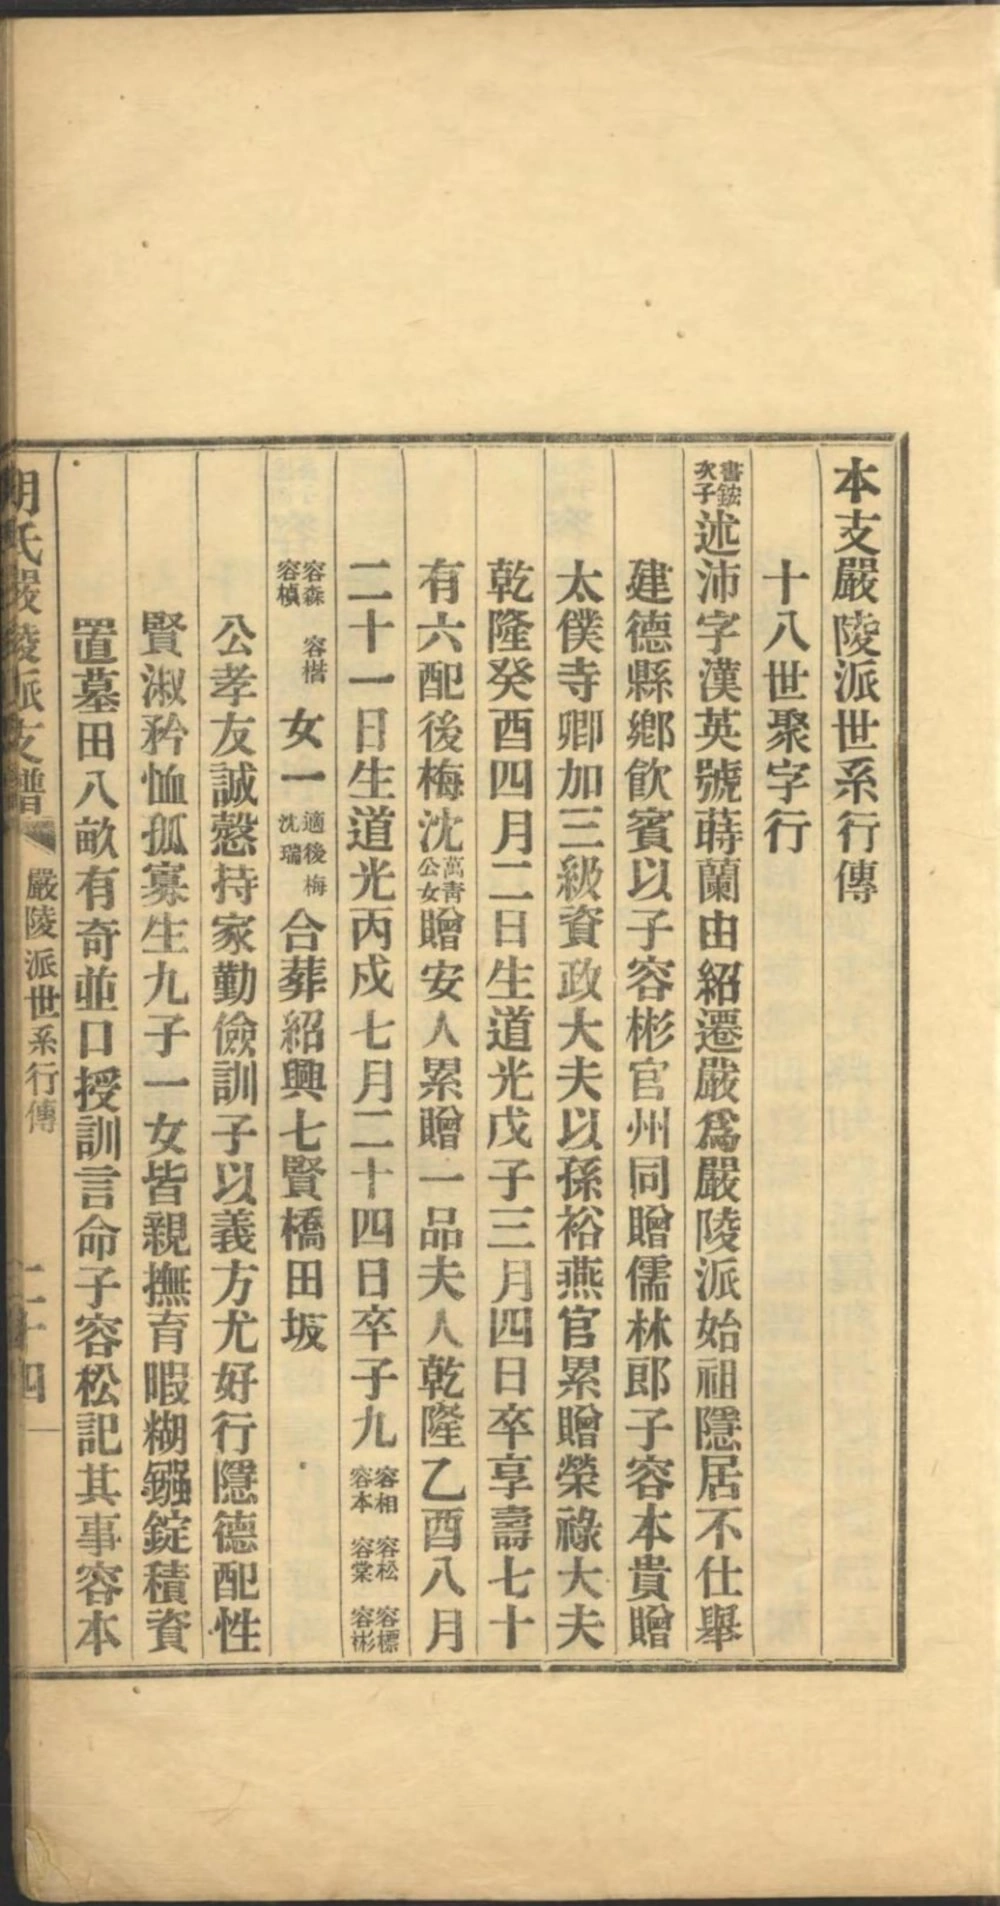 本支嚴陵派世系行傳
十八世聚字行
書鋐次子述沛字漢英號蒔蘭由紹遷嚴爲嚴陵派始祖隱居不仕舉
建德縣鄉飲賓以子容彬官州同贈儒林郎子容本貴贈
太僕寺卿加三級資政大夫以孫裕燕官累贈榮祿大夫
乾隆癸酉四月二日生道光戊子三月四日卒享壽七十
有六配後梅沈萬靑公女贈安人累贈一品夫人乾隆乙酉八月
二十一日生道光丙戌七月二十四日卒子九容相容松容標容本容棠容彬
容森容楷容槙女一適後梅沈瑞合葬紹興七賢橋田坂
公孝友誠慤持家勤儉訓子以義方尤好行隱德配性
賢淑矜恤孤寡生九子一女皆親撫育暇糊鏹錠積資
置墓田八畝有奇並口授訓言命子容松記其事容本
胡氏嚴陵派支譜 嚴陵派世系行傳 二十四